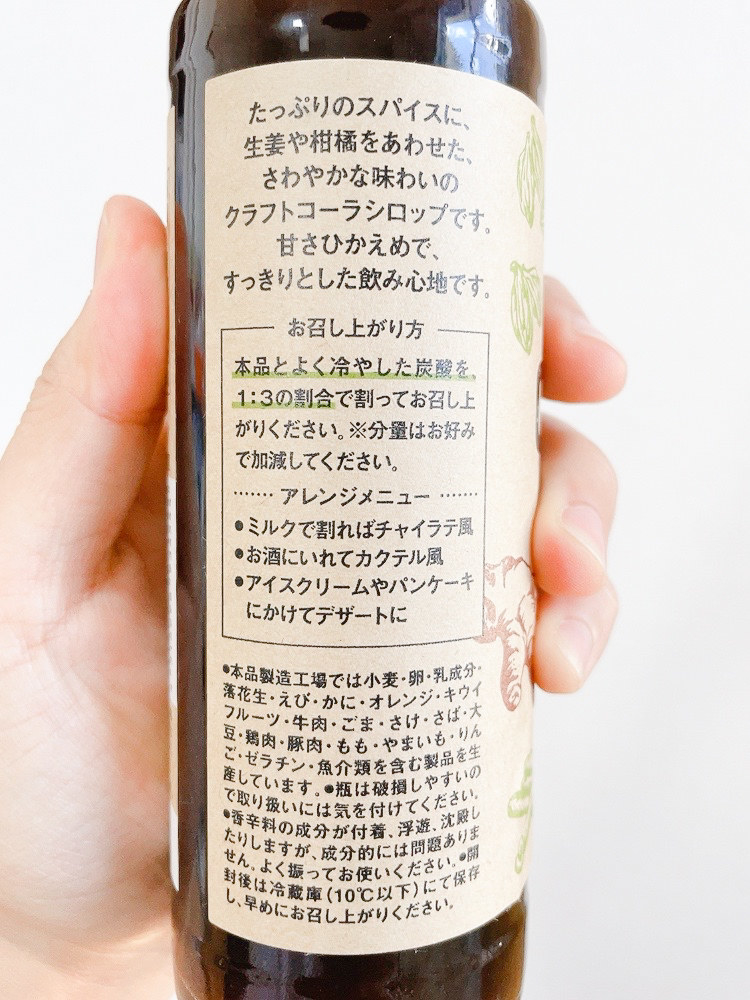 たっぷりのスパイスに、
生姜や柑橘をあわせた、
さわやかな味わいの
クラフトコーラシロップです。
甘さひかえめで、
すっきりとした飲み心地です。
お召し上がり方
本品とよく冷やした炭酸を
1:3の割合で割ってお召し上
がりください。※分量はお好み
で加減してください。
アレンジメニュー
●ミルクで割ればチャイラテ風
●お酒にいれてカクテル風
●アイスクリームやパンケーキ
にかけてデザートに
●本品製造工場では小麦・卵・乳成分・
落花生・えび・かに・オレンジ・キウイ
フルーツ・牛肉・ごま・さけ・さば・大
豆・鶏肉・豚肉・もも・やまいも・りん
ご・ゼラチン・魚介類を含む製品を生
産しています。●瓶は破損しやすいの
で取り扱いには気を付けてください。
●香辛料の成分が付着、浮遊、沈殿し
たりしますが、成分的には問題ありま
せん。よく振ってお使いください。●開
封後は冷蔵庫(10℃以下)にて保存
し、早めにお召し上がりください。